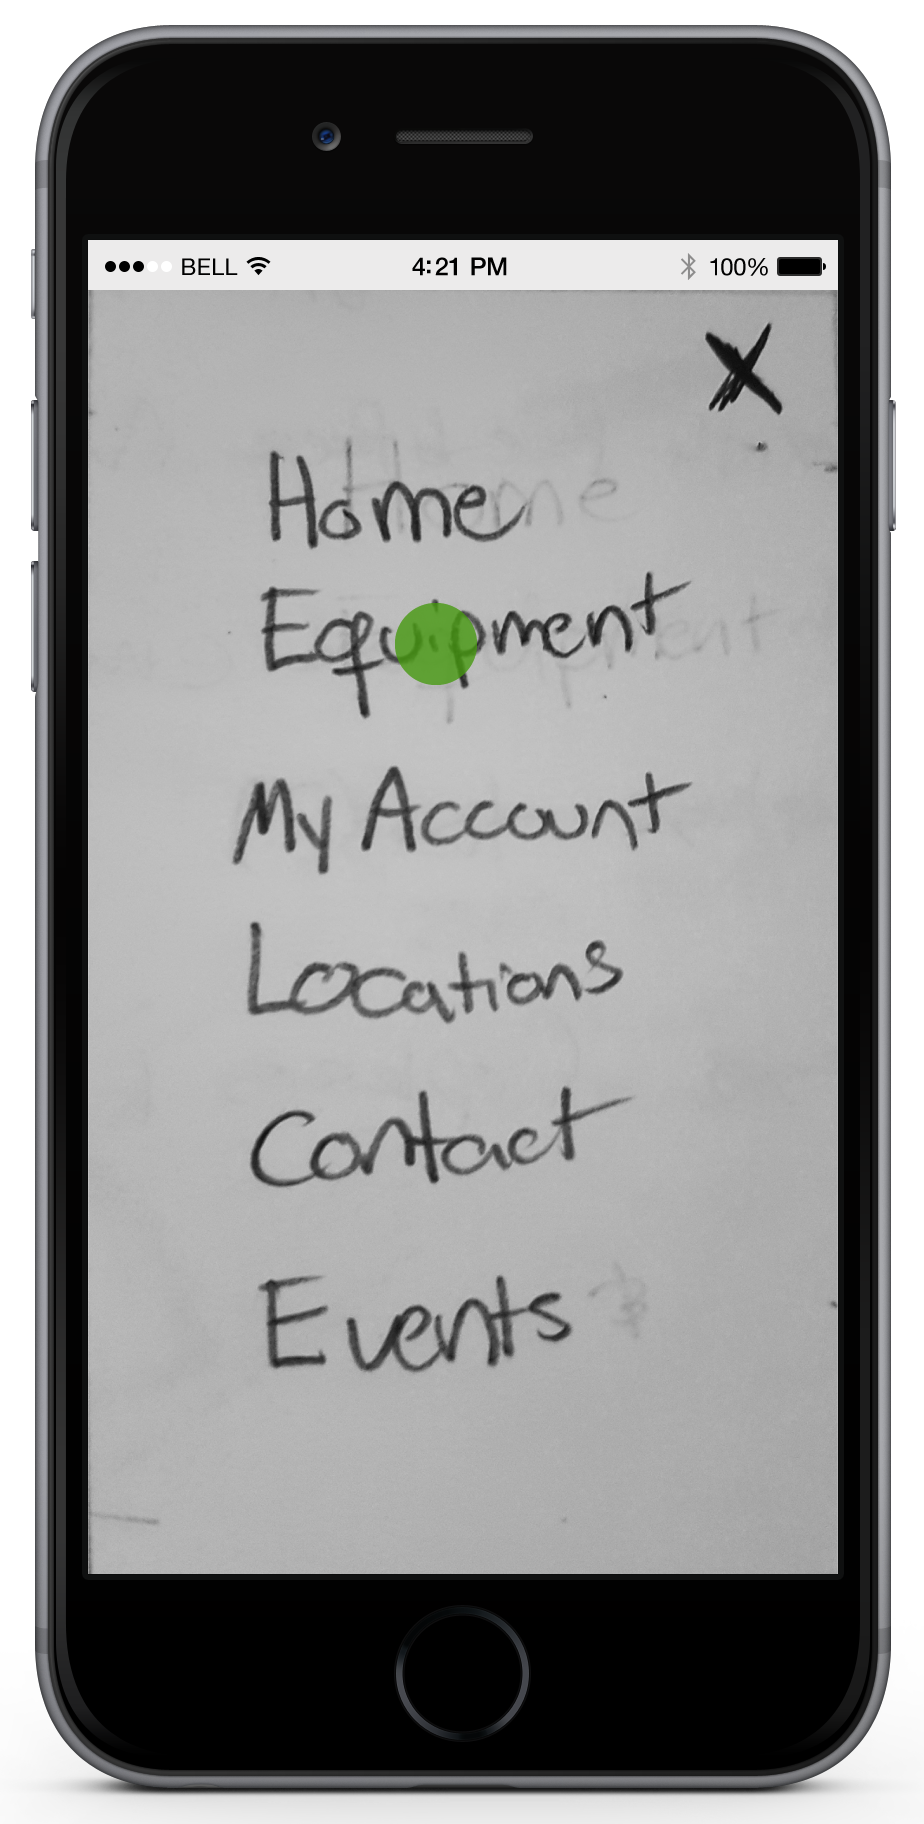 BELL 4:21 PM 100%
X
Home
Equipment
My Account
Locations
Contact
Events